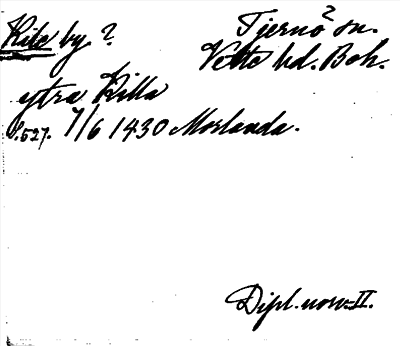 Kile by ?
Tjernö ? sn.
Vette hd. Boh.
ytra Killa
S. 527. 7/6 1430 Morlanda.
Dipl. norv. II.